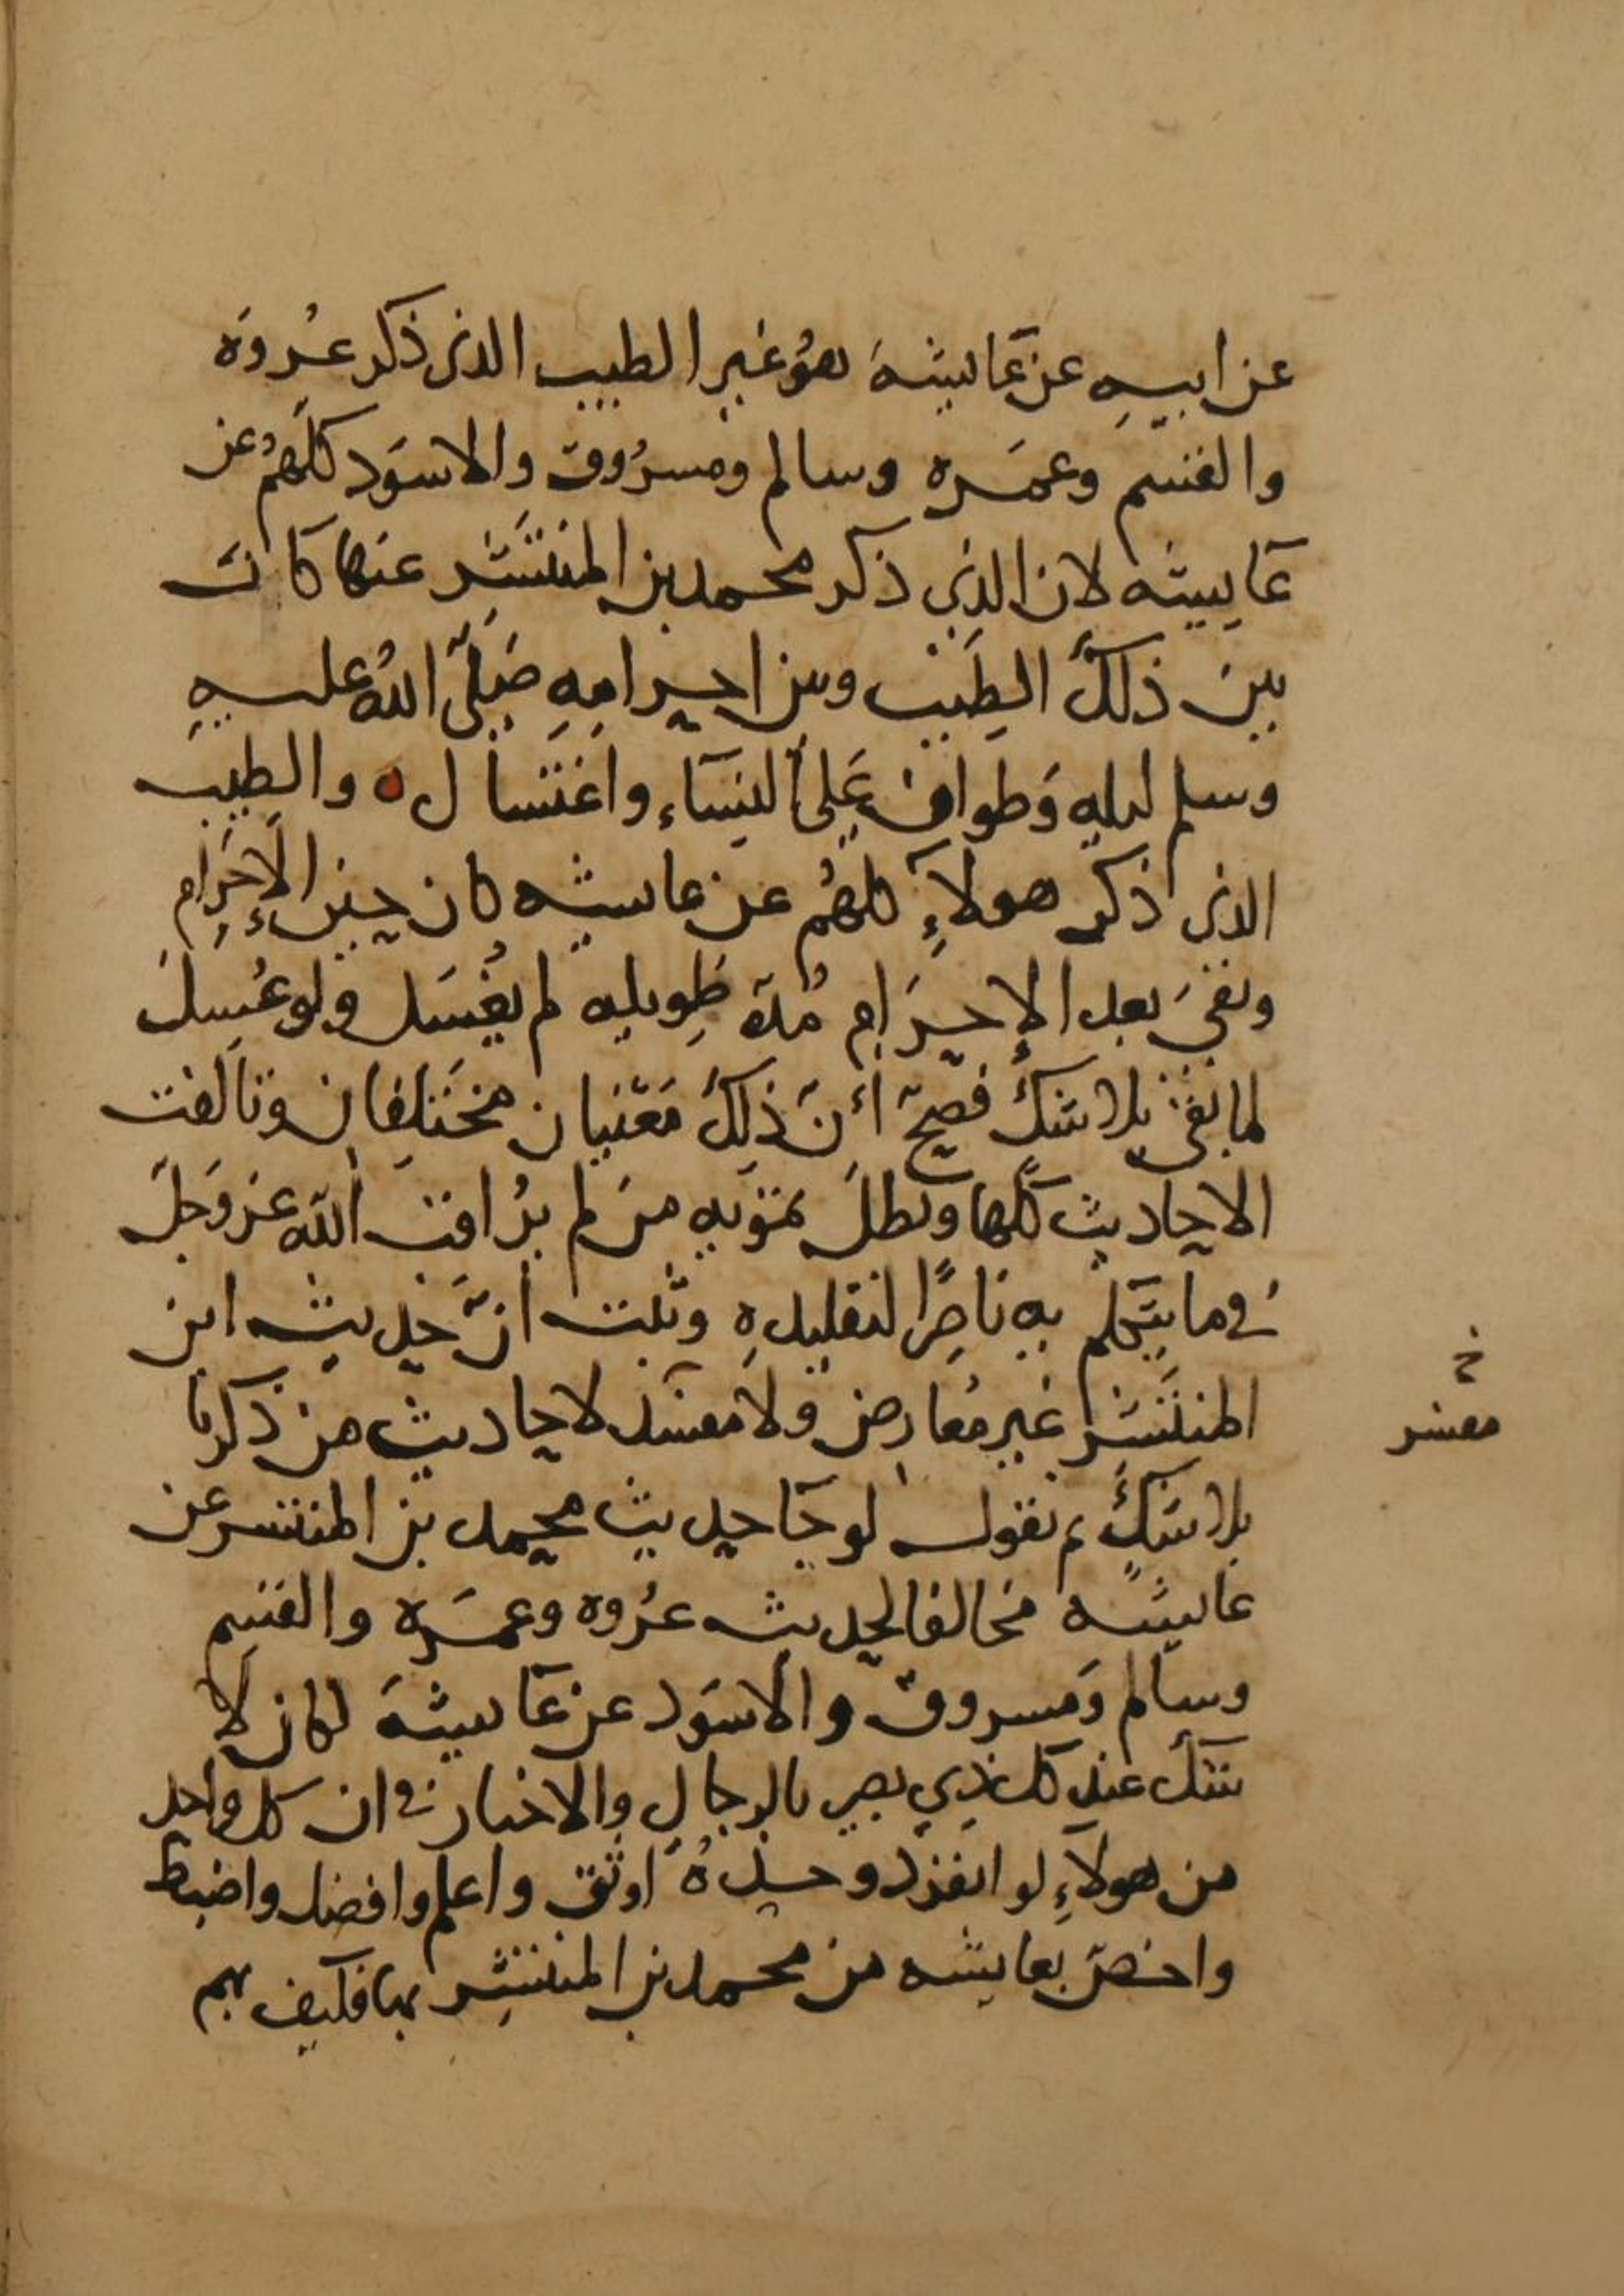 عن ابيهِ عن عَايشةَ هوُ غير الطيب الذي ذكر عُروَه
والقسم وعمَره وسالم ومسرُوق والاسوَد كلهمُ عن
عَايِشه لان الذِي ذكر محمد بن المنتَشِر عنها كانتَ
بين ذلكَ الطِيب وبين احرامِهِ صَلّى اللهُ عليهِ
وسلم ليله وَطواف عَلى النسَاء واغتسال ه والطِيب
الذي ذكر هولاَءِ كلهُم عن عايشه كان حِين الاِحرَام
وبقيَ بعد الإحرَام مُدة طوِيله لم يُغسَل ولو غُسِل
لما بقي بلا شكَ فصحّ أنّ ذلِكَ مَعْنيان مختَلِفان وتالفت
الاحاديث كلّها وبطلَ تمَويه من لم يُراقب اللَه عز وَجلَ
في ما يتكلم به ناصِرًا لتقليدهِ وثبت انَّ حديث ابن
المنتَشِر غير مُعارض ولا مفسد لاحاديث من ذكرنا
خ
مفسر
بلا شكٍ ثم نقول لو جَا حديث محمد بن المنتشر عن
عايشه مخالفًا لحديث عرُوه وعمَره والقسِم
وسالم وَمسروق والاسوَد عن عَايشةَ لكان لَا
شكَ عند كل ذِي بصر بالرجالِ والاخبار في ان كل واحد
من هولاَءِ لو انفرَد وحدهُ اوثق واعلم وافضل واضبط
واخصّ بعايشه من محمد بن المنتشِر بها فكيف بهم